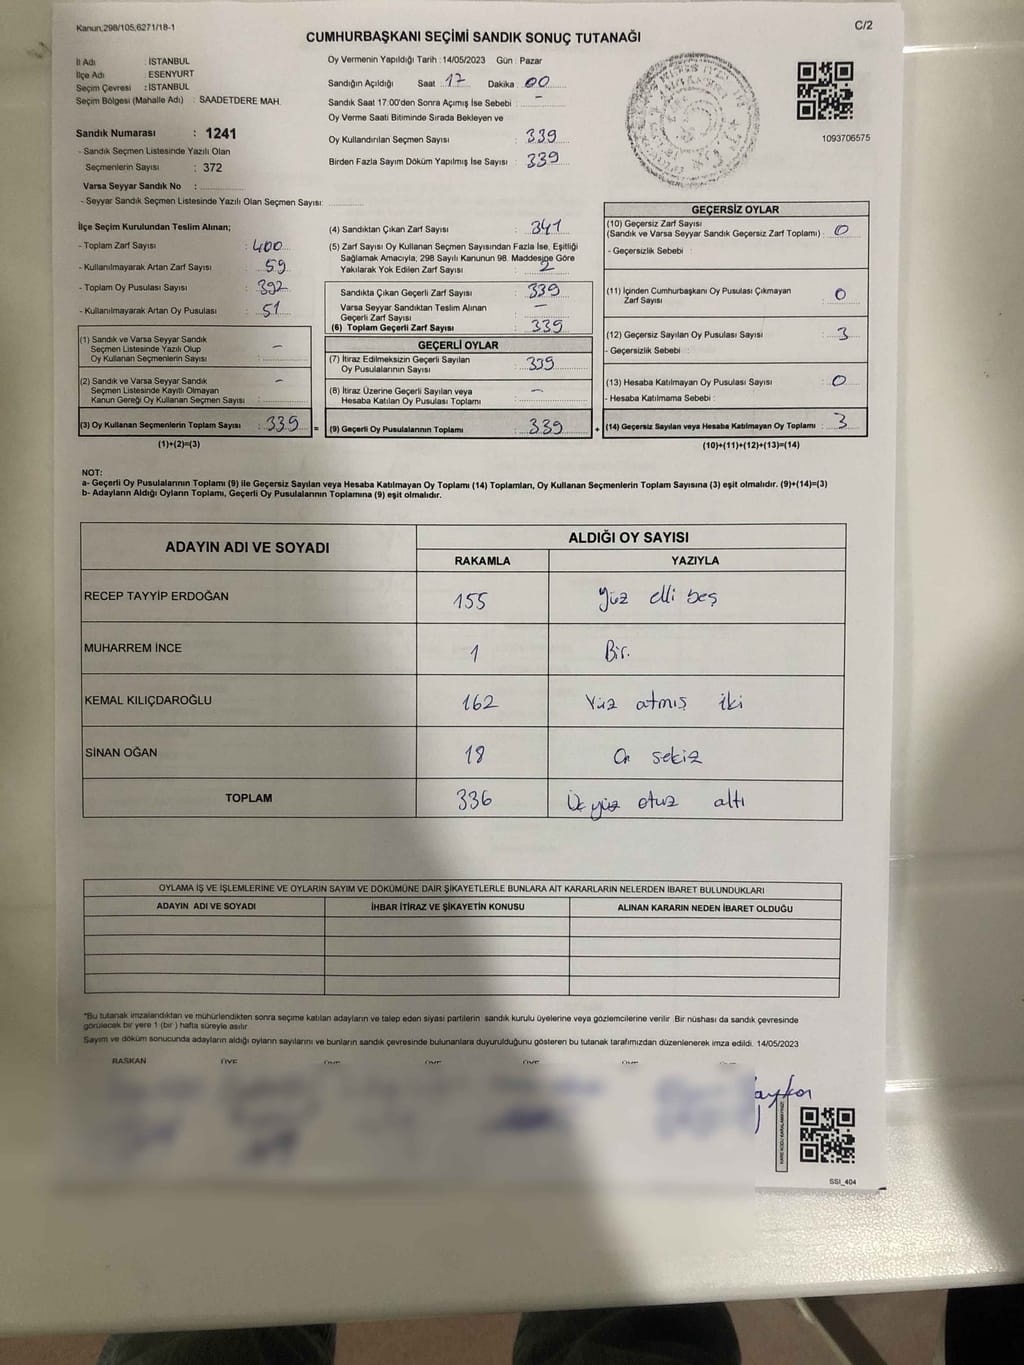 Kanun,298/105,6271/18-1
C/2
CUMHURBAŞKANI SEÇİMİ SANDIK SONUÇ TUTANAĞI
İl Adı : İSTANBUL
İlçe Adı : ESENYURT
Seçim Çevresi : İSTANBUL
Seçim Bölgesi (Mahalle Adı) : SAADETDERE MAH.
Sandık Numarası : 1241
- Sandık Seçmen Listesinde Yazılı Olan
Seçmenlerin Sayısı : 372
Varsa Seyyar Sandık No :
- Seyyar Sandık Seçmen Listesinde Yazılı Olan Seçmen Sayısı:
Oy Vermenin Yapıldığı Tarih : 14/05/2023 Gün : Pazar
Sandığın Açıldığı Saat 17 Dakika : 00
Sandık Saat 17:00'den Sonra Açımış İse Sebebi : -
Oy Verme Saati Bitiminde Sırada Bekleyen ve
Oy Kullandırılan Seçmen Sayısı : 339
Birden Fazla Sayım Döküm Yapılmış İse Sayısı : 339
1093706575
İlçe Seçim Kurulundan Teslim Alınan;
- Toplam Zarf Sayısı : 400
- Kullanılmayarak Artan Zarf Sayısı : 59
- Toplam Oy Pusulası Sayısı : 392
- Kullanılmayarak Artan Oy Pusulası : 51
(1) Sandık ve Varsa Seyyar Sandık
Seçmen Listesinde Yazılı Olup
Oy Kullanan Seçmenlerin Sayısı : -
(2) Sandık ve Varsa Seyyar Sandık
Seçmen Listesinde Kayıtlı Olmayan
Kanun Gereği Oy Kullanan Seçmen Sayısı : -
(3) Oy Kullanan Seçmenlerin Toplam Sayısı : 339
(1)+(2)=(3)
(4) Sandıktan Çıkan Zarf Sayısı : 341
(5) Zarf Sayısı Oy Kullanan Seçmen Sayısından Fazla İse, Eşitliği
Sağlamak Amacıyla; 298 Sayılı Kanunun 98. Maddesine Göre
Yakılarak Yok Edilen Zarf Sayısı : 2
Sandıkta Çıkan Geçerli Zarf Sayısı : 339
Varsa Seyyar Sandıktan Teslim Alınan
Geçerli Zarf Sayısı : -
(6) Toplam Geçerli Zarf Sayısı : 339
GEÇERLİ OYLAR
(7) İtiraz Edilmeksizin Geçerli Sayılan
Oy Pusulalarının Sayısı : 339
(8) İtiraz Üzerine Geçerli Sayılan veya
Hesaba Katılan Oy Pusulası Toplamı : -
= (9) Geçerli Oy Pusulalarının Toplamı : 339
GEÇERSİZ OYLAR
(10) Geçersiz Zarf Sayısı
(Sandık ve Varsa Seyyar Sandık Geçersiz Zarf Toplamı) : 0
- Geçersizlik Sebebi :
(11) İçinden Cumhurbaşkanı Oy Pusulası Çıkmayan
Zarf Sayısı : 0
(12) Geçersiz Sayılan Oy Pusulası Sayısı : 3
- Geçersizlik Sebebi :
(13) Hesaba Katılmayan Oy Pusulası Sayısı : 0
- Hesaba Katılmama Sebebi :
+ (14) Geçersiz Sayılan veya Hesaba Katılmayan Oy Toplamı : 3
(10)+(11)+(12)+(13)=(14)
NOT:
a- Geçerli Oy Pusulalarının Toplamı (9) ile Geçersiz Sayılan veya Hesaba Katılmayan Oy Toplamı (14) Toplamları, Oy Kullanan Seçmenlerin Toplam Sayısına (3) eşit olmalıdır. (9)+(14)=(3)
b- Adayların Aldığı Oyların Toplamı, Geçerli Oy Pusulalarının Toplamına (9) eşit olmalıdır.
ADAYIN ADI VE SOYADI ALDIĞI OY SAYISI
RAKAMLA YAZIYLA
RECEP TAYYİP ERDOĞAN 155 Yüz elli beş
MUHARREM İNCE 1 Bir.
KEMAL KILIÇDAROĞLU 162 Yüz atmış iki
SİNAN OĞAN 18 On sekiz
TOPLAM 336 Üç yüz otuz altı
OYLAMA İŞ VE İŞLEMLERİNE VE OYLARIN SAYIM VE DÖKÜMÜNE DAİR ŞİKAYETLERLE BUNLARA AİT KARARLARIN NELERDEN İBARET BULUNDUKLARI
ADAYIN ADI VE SOYADI İHBAR İTİRAZ VE ŞİKAYETİN KONUSU ALINAN KARARIN NEDEN İBARET OLDUĞU
*Bu tutanak imzalandıktan ve mühürlendikten sonra seçime katılan adayların ve talep eden siyasi partilerin sandık kurulu üyelerine veya gözlemcilerine verilir. Bir nüshası da sandık çevresinde
görülecek bir yere 1 (bir) hafta süreyle asılır.
Sayım ve döküm sonucunda adayların aldığı oyların sayılarını ve bunların sandık çevresinde bulunanlara duyurulduğunu gösteren bu tutanak tarafımızdan düzenlenerek imza edildi. 14/05/2023
BAŞKAN ÜYE ÜYE ÜYE ÜYE ÜYE ÜYE
SSI_404